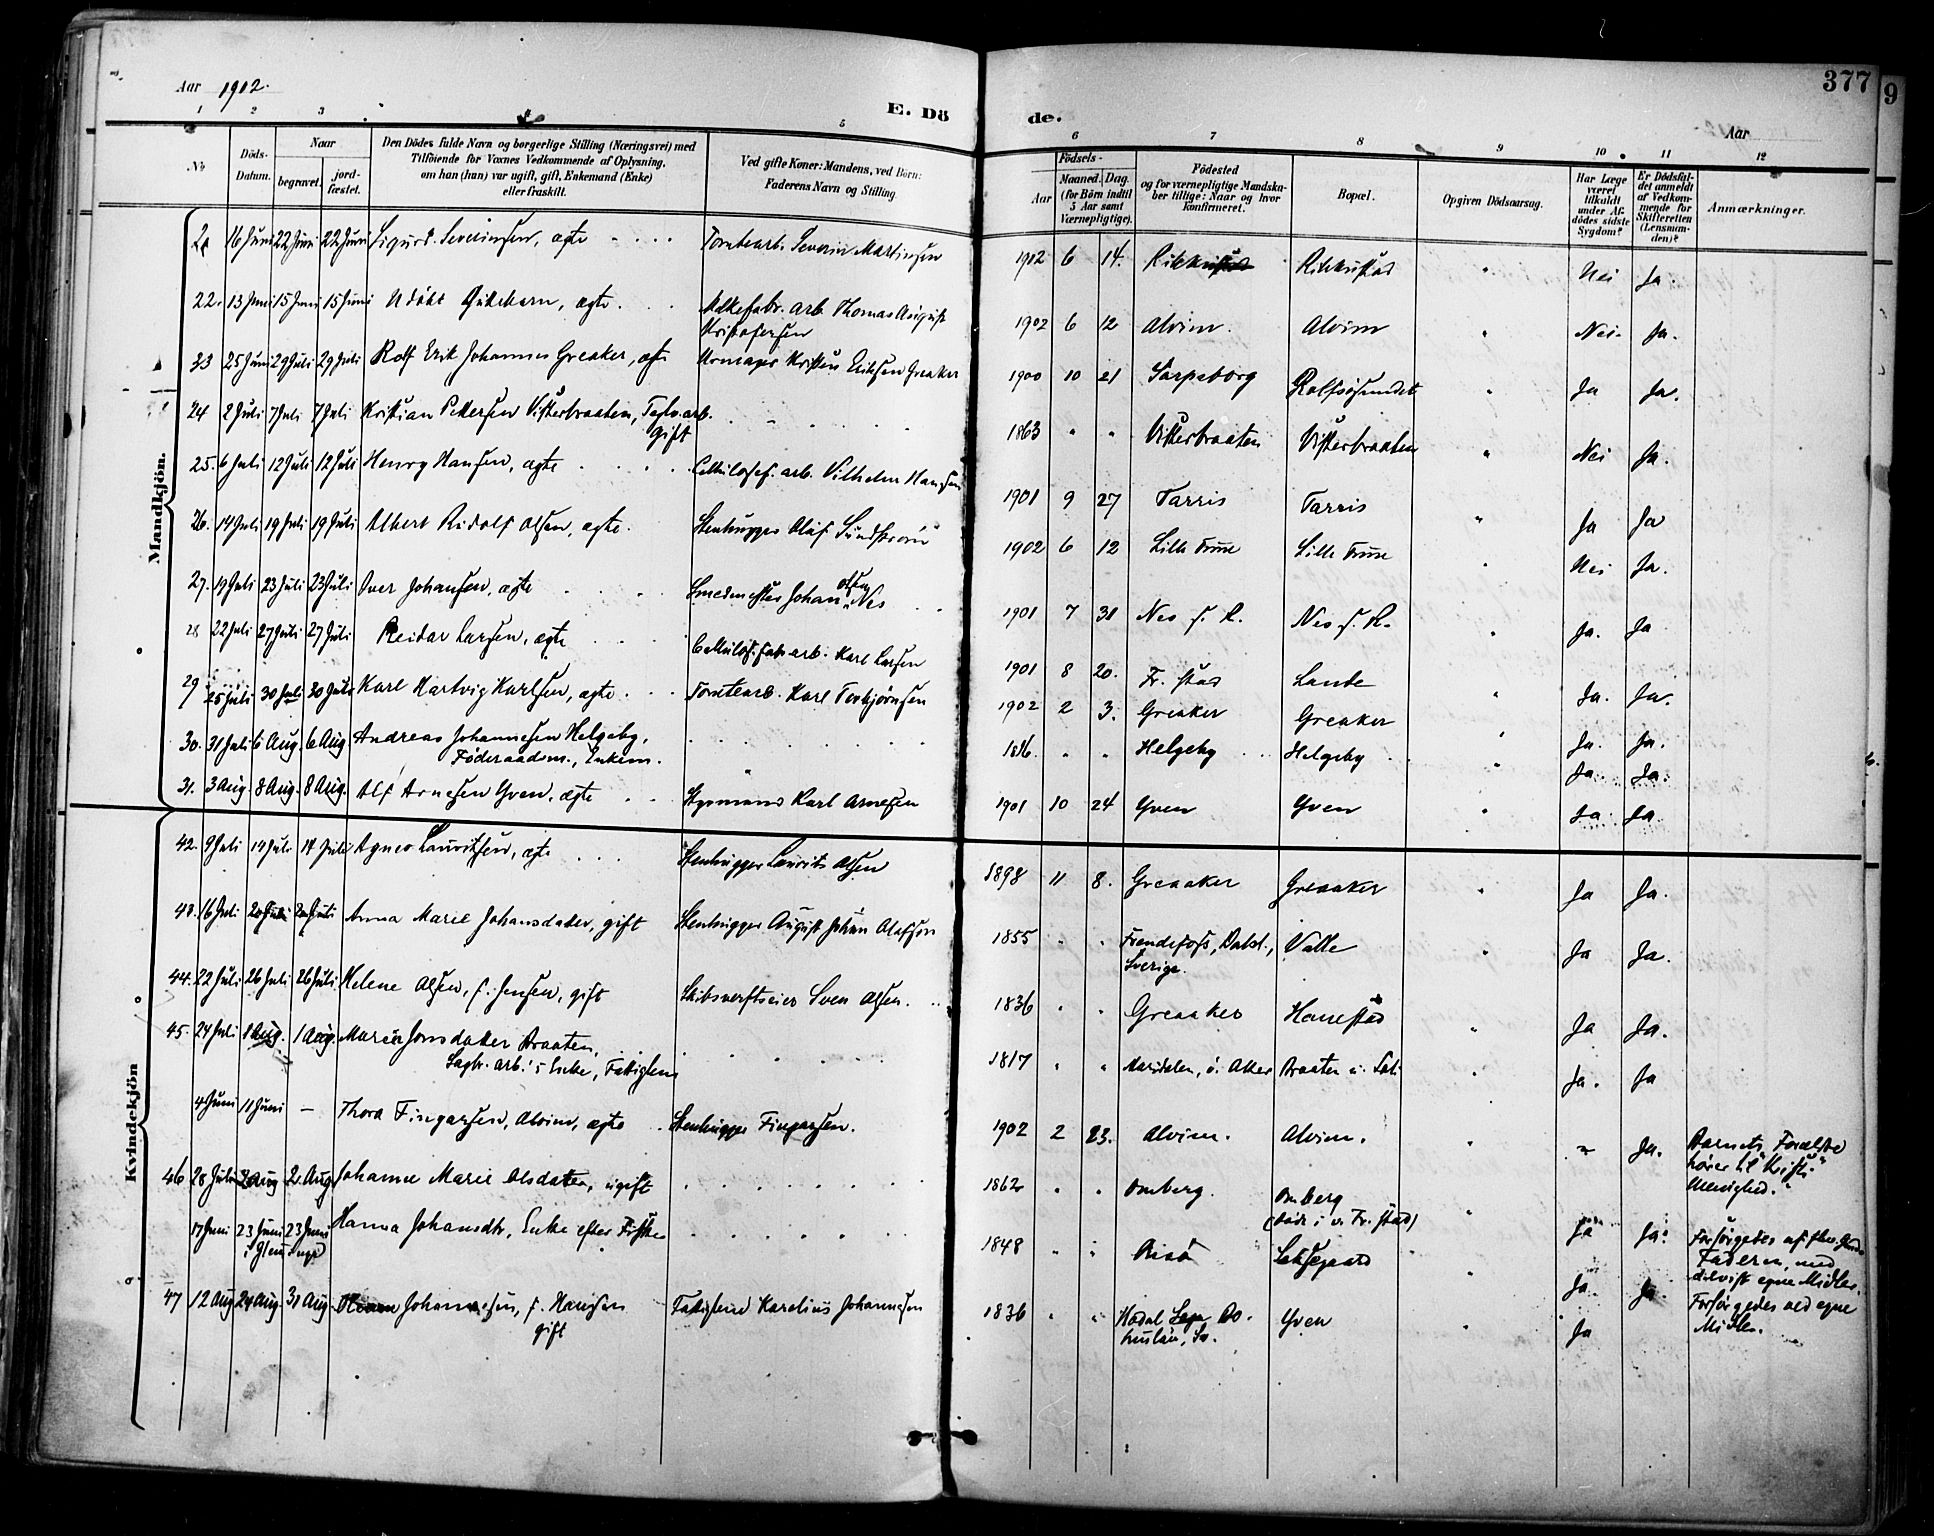 Aar 1902.
E. Dö
de.
Aar
377
9
1 2 3 4 5 6 7 8 9 10 11 12
No
Döds-Datum.
Naar
begravet.
jord-fæstet.
Den Dödes fulde Navn og borgerlige Stilling (Næringsvei) med
Tilföiende for Voxnes Vedkommende af Oplysning,
om han (hun) var ugift, gift, Enkemand (Enke)
eller fraskilt.
Ved gifte Koner: Mandens, ved Börn:
Faderens Navn og Stilling.
Födsels-
Aar
Maaned. Dag.
(for Börn indtil
5 Aar samt
Værnepligtige).
Födested
og for værnepligtige Mandska-
ber tillige: Naar og hvor
konfirmeret.
Bopæl.
Opgiven Dödsaarsag.
Har Læge
været
tilkaldt
under Af-
dödes sidste
Sygdom?
Er Dödsfal-
det anmeldt
af Vedkom-
mende for
Skifteretten
(Lensman-
den)?
Anmærkninger.
Mandkjön.
21 16 Juni 22 Juni 22 Juni Sigurd Severinsen, ægte Tomtearb. Severin Martinsen 1902 6 14. Rikkustad Nei Ja.
22. 13 Juni 15 Juni 15 Juni Udöbt Gutebarn, ægte. arb. Thomas August
Kristofersen 1902 6 12 Alvim. Alvim Nei. Ja.
23 25 Juni 29 Juli 29 Juli Rolf Erik Johannes Greaker, ægte Urmager Kristen Eriksen Greaker 1900 10 21 Sarpsborg Rolfsösundet Ja Ja.
24 2 Juli 7 Juli 7 Juli Kristian Pettersen Visterbraaten, Teglv.arb.
gift 1863 " " Visterbraaten Visterbraaten Nei Ja.
25. 6 Juli 12 Juli 12 Juli Henry Hansen, ægte Cellulosef. arb. Vilhelm Hansen 1901 9 27 Tarris Tarris Ja Ja
26. 14 Juli 19 Juli 19 Juli Albert Ridolf Olsen, ægte. Stenhugger Olaf Sundström 1902 6 12 Lille Tune Lille Tune Nei Ja.
27. 19 Juli 23 Juli 23 Juli Iver Johansen, ægte Smedmester Johan Olsen Nes 1901 7 31 Nes s. R. Nes s. R. Ja. Ja
28 22 Juli 27 Juli 27 Juli Reidar Larsen, ægte Cellulosefab arb. Karl Larsen 1901 8 20. Fr. stad Lande Ja. Ja.
29 25 Juli 30 Juli 30 Juli Karl Hartvig Karlsen, ægte Tomtearb. Karl Torbjörnsen 1902 2 3. Greaker Greaker Ja. Ja.
30. 31 Juli 6 Aug. 6 Aug Andreas Johannesen Helgeby,
Föderaadsm., Enkem. 1816. " " Helgeby Helgeby Ja. Ja.
31. 3 Aug. 8 Aug. 8 Aug. Alf Arnesen Yven, ægte Styrmand Karl Arnesen 1901 10 24 Yven Yven Ja Ja
Kvindekjön
42. 9 Juli 14 Juli 14 Juli Agnes Lauritsen, ægte Stenhugger Laurits Olsen 1898 11 8. Greaaker Greaaker Ja Ja.
43. 16 Juli 20 Juli 20 Juli Anna Marie Johansdatter, gift Stenhugger August Johan Olafsson 1855 " " Frendefors, Dalsl.,
Sverige. Valle Ja Ja.
44. 22 Juli 26 Juli 26 Juli Helene Olsen, f. Jensen, gift Skibsverftseier Sven Olsen. 1836 " " Greaaker Hanestad Ja Ja.
45. 24 Juli 1 Aug. 1 Aug. Marie Jonsdatter Braaten,
Sagbr. arb.'s Enke, Fattiglem 1817 " " Maridalen, ö. Aker Braaten u. Ja. Ja
4 Juni 11 Juni – Thora Fingarsen, Alvim, ægte Stenhugger Fingarsen. 1902 2 23. Alvim. Alvim. " Ja. Barnets Forældre
hörer til "Kristi
Menighed."
46 28 Juli 2 Aug 2 Aug Johanne Marie Olsdatter, ugift 1862 " " Omberg. Omberg
(död i v. Fr. stad) Ja Ja. Forsörgedes af
Faderen, med
delvist egne Midler.
17 Juni 23 Juni 23 Juni Hanna Johansdtr., Enke efter Fisker
i Glem. 1848 " " Risö Ja. Ja. Forsörgedes ved egne
Midler.
47 12 Aug 24 Aug 31 Aug Johannesen, f. Hansen
gift Fattiglem Karelius Johannesen 1836 " " Bo-
huslän, Sv. Yven Ja